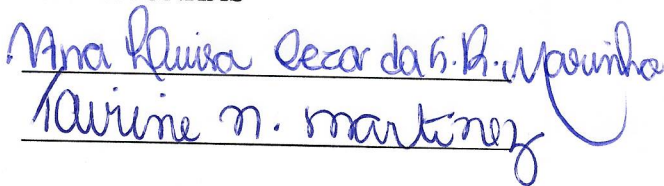 Ana Luisa Cezar da S. R. Marinho
Tavine M. Martinez